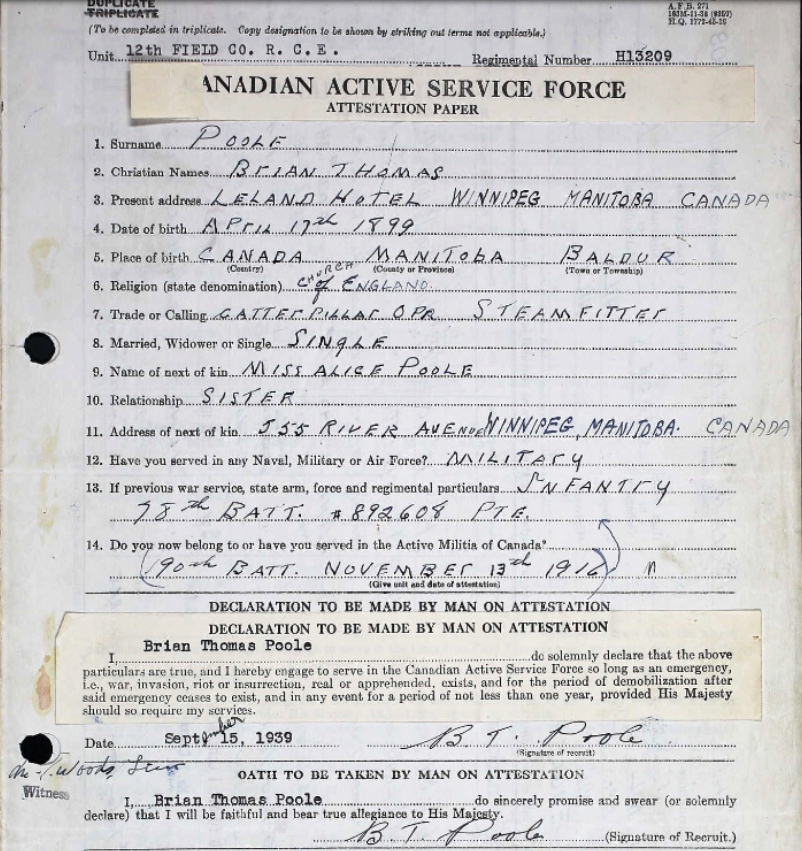 DUPLICATE
TRIPLICATE
A.F.B. 271
H.Q. 1772-45-18
(To be completed in triplicate. Copy designation to be shown by striking out terms not applicable.)
Unit 12th FIELD CO. R. C. E. Regimental Number H13209
ANADIAN ACTIVE SERVICE FORCE
ATTESTATION PAPER
1. Surname POOLE
2. Christian Names BRIAN THOMAS
3. Present address LELAND HOTEL WINNIPEG MANITOBA CANADA
4. Date of birth APRIL 17th 1899
5. Place of birth CANADA MANITOBA BALDUR
(Country) (County or Province) (Town or Township)
6. Religion (state denomination) CHURCH of ENGLAND
7. Trade or Calling CATTERPILLAR OPR STEAMFITTER
8. Married, Widower or Single SINGLE
9. Name of next of kin MISS ALICE POOLE
10. Relationship SISTER
11. Address of next of kin 555 RIVER AVENUE WINNIPEG, MANITOBA. CANADA
12. Have you served in any Naval, Military or Air Force? MILITARY
13. If previous war service, state arm, force and regimental particulars INFANTRY
78th BATT. #892608 PTE.
14. Do you now belong to or have you served in the Active Militia of Canada?
(190th BATT. NOVEMBER 13th 1916)
(Give unit and date of attestation)
DECLARATION TO BE MADE BY MAN ON ATTESTATION
DECLARATION TO BE MADE BY MAN ON ATTESTATION
I, Brian Thomas Poole do solemnly declare that the above
particulars are true, and I hereby engage to serve in the Canadian Active Service Force so long as an emergency,
i.e., war, invasion, riot or insurrection, real or apprehended, exists, and for the period of demobilization after
said emergency ceases to exist, and in any event for a period of not less than one year, provided His Majesty
should so require my services.
Date September 15, 1939 B. T. Poole
(Signature of recruit)
OATH TO BE TAKEN BY MAN ON ATTESTATION
Witness
I, Brian Thomas Poole do sincerely promise and swear (or solemnly
declare) that I will be faithful and bear true allegiance to His Majesty.
B. T. Poole (Signature of Recruit.)